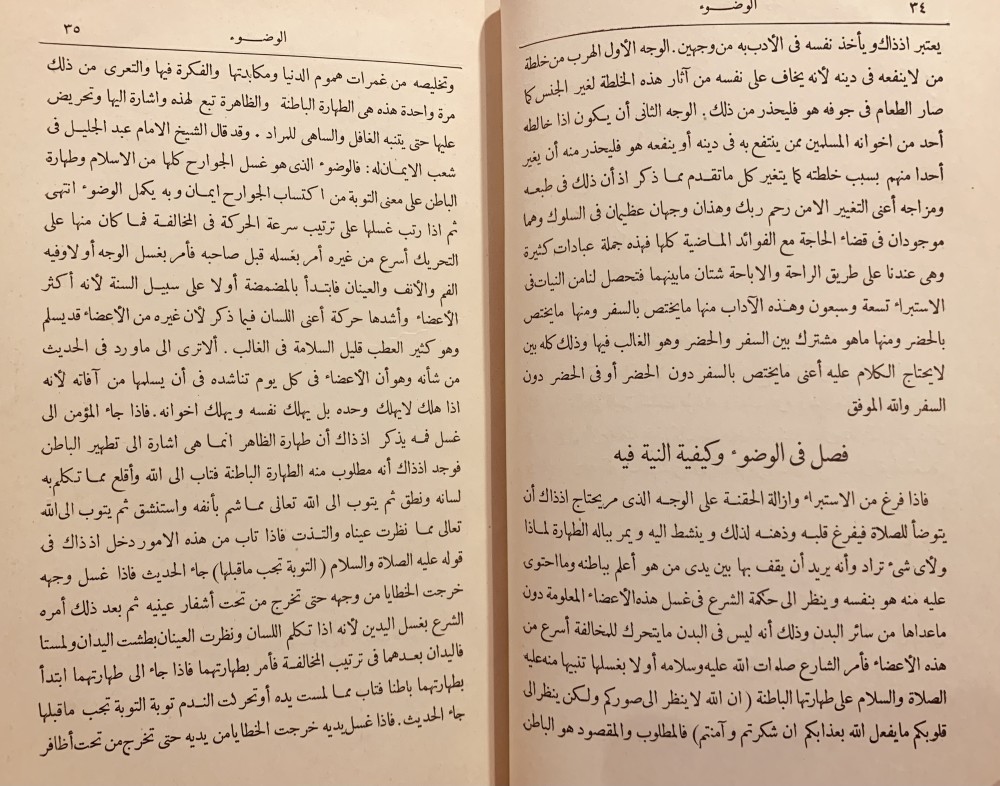 ٣٤
الوضـــوء
يعتبر اذذاك و يأخذ نفسه فى الأدب به من وجهين. الوجه الأول الهرب من خلطة
من لا ينفعه فى دينه لأنه يخاف على نفسه من آثار هذه الخلطة لغير الجنس كما
صار الطعام فى جوفه هو فليحذر من ذلك. الوجه الثانى أن يكون اذا خالطه
أحد من اخوانه المسلمين ممن ينتفع به فى دينه أو ينفعه هو فليحذر منه أن يغير
أحدا منهم بسبب خلطته كما يتغير كل ما تقدم مما ذكر اذ أن ذلك فى طبعه
ومزاجه أعنى التغيير الا من رحم ربك وهذان وجهان عظيمان فى السلوك وهما
موجودان فى قضاء الحاجة مع الفوائد الماضية كلها فهذه جملة عبادات كثيرة
وهى عندنا على طريق الراحة والاباحة شتان ما بينهما فتحصل لنا من النيات فى
الاستبراء تسعة وسبعون وهذه الآداب منها ما يختص بالسفر ومنها ما يختص
بالحضر ومنها ما هو مشترك بين السفر والحضر وهو الغالب فيها وذلك كله بين
لا يحتاج الكلام عليه أعنى ما يختص بالسفر دون الحضر أو فى الحضر دون
السفر والله الموفق
فصل فى الوضوء وكيفية النية فيه
فاذا فرغ من الاستبراء وازالة الحقنة على الوجه الذى مر يحتاج اذذاك أن
يتوضأ للصلاة فيفرغ قلبه وذهنه لذلك و ينشط اليه و يمر بباله الطهارة لماذا
ولأى شىء تراد وأنه يريد أن يقف بها بين يدى من هو أعلم بباطنه وما احتوى
عليه منه هو بنفسه و ينظر الى حكمة الشرع فى غسل هذه الأعضاء المعلومة دون
ماعداها من سائر البدن وذلك أنه ليس فى البدن ما يتحرك للمخالفة أسرع من
هذه الأعضاء فأمر الشارع صلوات الله عليه وسلامه أولا بغسلها تنبيها منه عليه
الصلاة والسلام على طهارتها الباطنة ( ان الله لا ينظر الى صوركم ولكن ينظر الى
قلوبكم ما يفعل الله بعذابكم ان شكرتم و آمنتم) فالمطلوب والمقصود هو الباطن
الوضـــوء
٣٥
وتخليصه من غمرات هموم الدنيا ومكابدتها والفكرة فيها والتعرى من ذلك
مرة واحدة هذه هى الطهارة الباطنة والظاهرة تبع لهذه واشارة اليها وتحريض
عليها حتى يتنبه الغافل والساهى للمراد . وقد قال الشيخ الامام عبد الجليل فى
شعب الايمان له: فالوضوء الذى هو غسل الجوارح كلها من الاسلام وطهارة
الباطن على معنى التوبة من اكتساب الجوارح ايمان و به يكمل الوضوء انتهى
ثم اذا رتب غسلها على ترتيب سرعة الحركة فى المخالفة فما كان منها على
التحريك أسرع من غيره أمر بغسله قبل صاحبه فأمر بغسل الوجه أو لا وفيه
الفم والأنف والعينان فابتدأ بالمضمضة أولا على سبيل السنة لأنه أكثر
الأعضاء وأشدها حركة أعنى اللسان فيما ذكر لأن غيره من الأعضاء قد يسلم
وهو كثير العطب قليل السلامة فى الغالب . ألا ترى الى ماورد فى الحديث
من شأنه وهو أن الأعضاء فى كل يوم تناشده فى أن يسلمها من آفاته لأنه
اذا هلك لا يهلك وحده بل يهلك نفسه و يهلك اخوانه. فاذا جاء المؤمن الى
غسل فمه يذكر اذذاك أن طهارة الظاهر انما هى اشارة الى تطهير الباطن
فوجد اذذاك أنه مطلوب منه الطهارة الباطنة فتاب الى الله وأقلع مما تكلم به
لسانه ونطق ثم يتوب الى الله تعالى مما شم بأنفه واستنشق ثم يتوب الى الله
تعالى مما نظرت عيناه والتذت فاذا تاب من هذه الامور دخل اذذاك فى
قوله عليه الصلاة والسلام ( التوبة تجب ماقبلها) جاء الحديث فاذا غسل وجهه
خرجت الخطايا من وجهه حتى تخرج من تحت أشفار عينيه ثم بعد ذلك أمره
الشرع بغسل اليدين لأنه اذا تكلم اللسان ونظرت العينان بطشت اليدان ولمستا
فاليدان بعدهما فى ترتيب المخالفة فأمر بطهارتهما فاذا جاء الى طهارتهما ابتدأ
بطهارتهما باطنا فتاب مما لمست يده أو تحركت الندم توبة التوبة تجب ماقبلها
جاء الحديث. فاذا غسل يديه خرجت الخطايا من يديه حتى تخرج من تحت أظافر